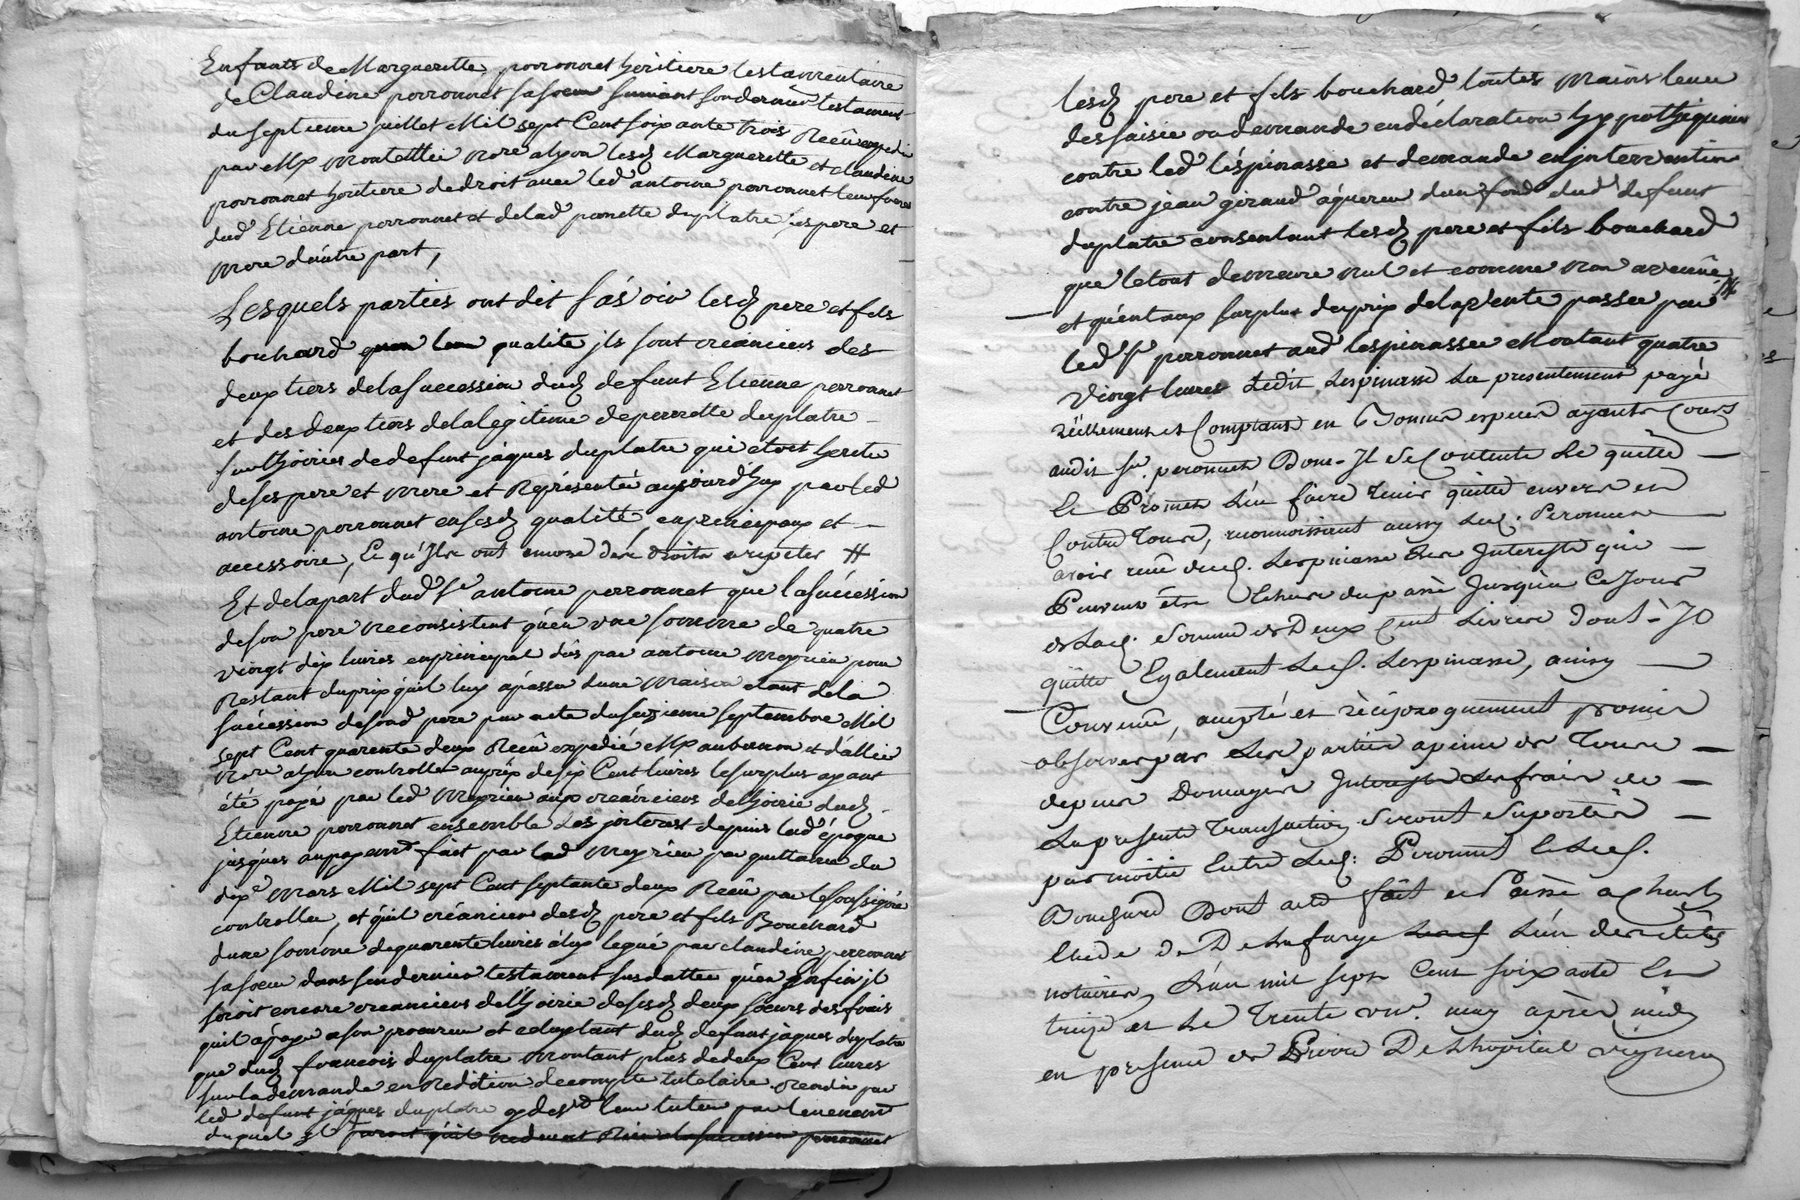 Enfants de Margueritte porronnet heritiere testamentaire
de Claudine porronnet sa soeur suivant son dernier testament
du septieme juillet Mil sept Cent soixante trois Receu expedié
par Me notre a lyon lesd Margueritte et claudine
porronnet heritiere de droit avec led antoine porronnet leur frere
dud Etienne porronnet et de lad perrette duplatre ses pere et
mere d'autre part,
Lesquels parties ont dit sás oir lesd pere et fils
bouchard qualite jls sont créanciers des
deux tiers de la succession dud defunt Etienne porronnet
et des deux tiers de la legitime de perrette duplatre
sur hoiries de defunt jàques duplatre qui etoit heritier
de ses pere et mere et Représenté aujourd'huy par led
antoine porronnet en sesd qualité, en principaux et
accessoire, Ce qu'Ils ont encore des droits a repeter #
Et de la part dud Sr antoine porronnet que la succéssion
de son pere ne consistent qu'en une somme de quatre
vingt dix livres en principal dûs par antoine Meyrieu pour
Restant du prix qu'il luy a passer d'une Maison etant de la
succéssion de sond pere par acte du seizieme septembre Mil
sept Cent quarente deux Receü expedié Me aubernon et d'allier
Nore a lyon controllé au prix de six Cent livres le surplus ayant
été payé par led Meyrieu aux creanciers de l'hoirie dud
Etienne porronnet ensemble Les jnterest depuis lad époque
jusques au payemt fait par led Meyrieu par quittance du
dixe Mars Mil sept Cent septante deux Receü par le soussigné
controllée, et qu'il créancier desd pere et fils Bouchard
d'une somme de quarente livres a luy legué par claudine porronnet
sa soeur dans son dernier testament susdatté qu'en Enfin jl
seroit encore creanciers de l'hoirie de sesd deux soeurs des frais
qu'il a payé a son procureur et dud defunt jàques duplatre
que dud francois duplatre Montant plus de deux Cent livres
sur la demande en Reddition de compte tutelaire rendu par
led defunt jàques duplatre leur tuteur par l'evenemt
duquel jl paroit qu'il redevoit Rien la succession porronnet
lesd pere et fils bouchard toutes mains levée
des saisie ou demande en déclaration hyppothequaire
contre led léspinasse et demande en jntervention
contre jean giraud aquereur d'un fond dud defunt
duplatre consentant lesd pere et fils bouchard
que le tout demeure nul et comme non avenue
et qu'entaux surplus du prix de la vente passée par
led Sr porronnet aud lespinasse Montant quatre
vingt livres Ledit Lespinasse La presentement payé
réellement et Comptant en Bonnes especes ayants Cours
audit Sr peronnet Dont-Il se Contente Le quitte
Et Promet L'en faire tenir quitte envers et
Contre Tous, reconnoissant aussy Led. Peronnet
avoir reçue dud. Lespinasse Les Interests qui
Peuvent être Echus du passé Jusqu'à Ce Jour
et Lad. somme de Deux Cent Livres Dont-Il
quitte Egalement Led. Lespinasse, ainsy
Convenu, accepté et réciproquement promis
observer par Les parties a peine de Tous
depens Domages Interests Les frais de
La presente Transaction seront suportés
par moitié Entre Led. Peronnet Et Led.
Bouchard Dont acte fait et Passé a
Etude de De Lafarge L'un des dits
notaires, L'an mil sept Cent soixante Et
treize et Le Trente un. may après midy
en presence de Pierre De Lhopital vigneron